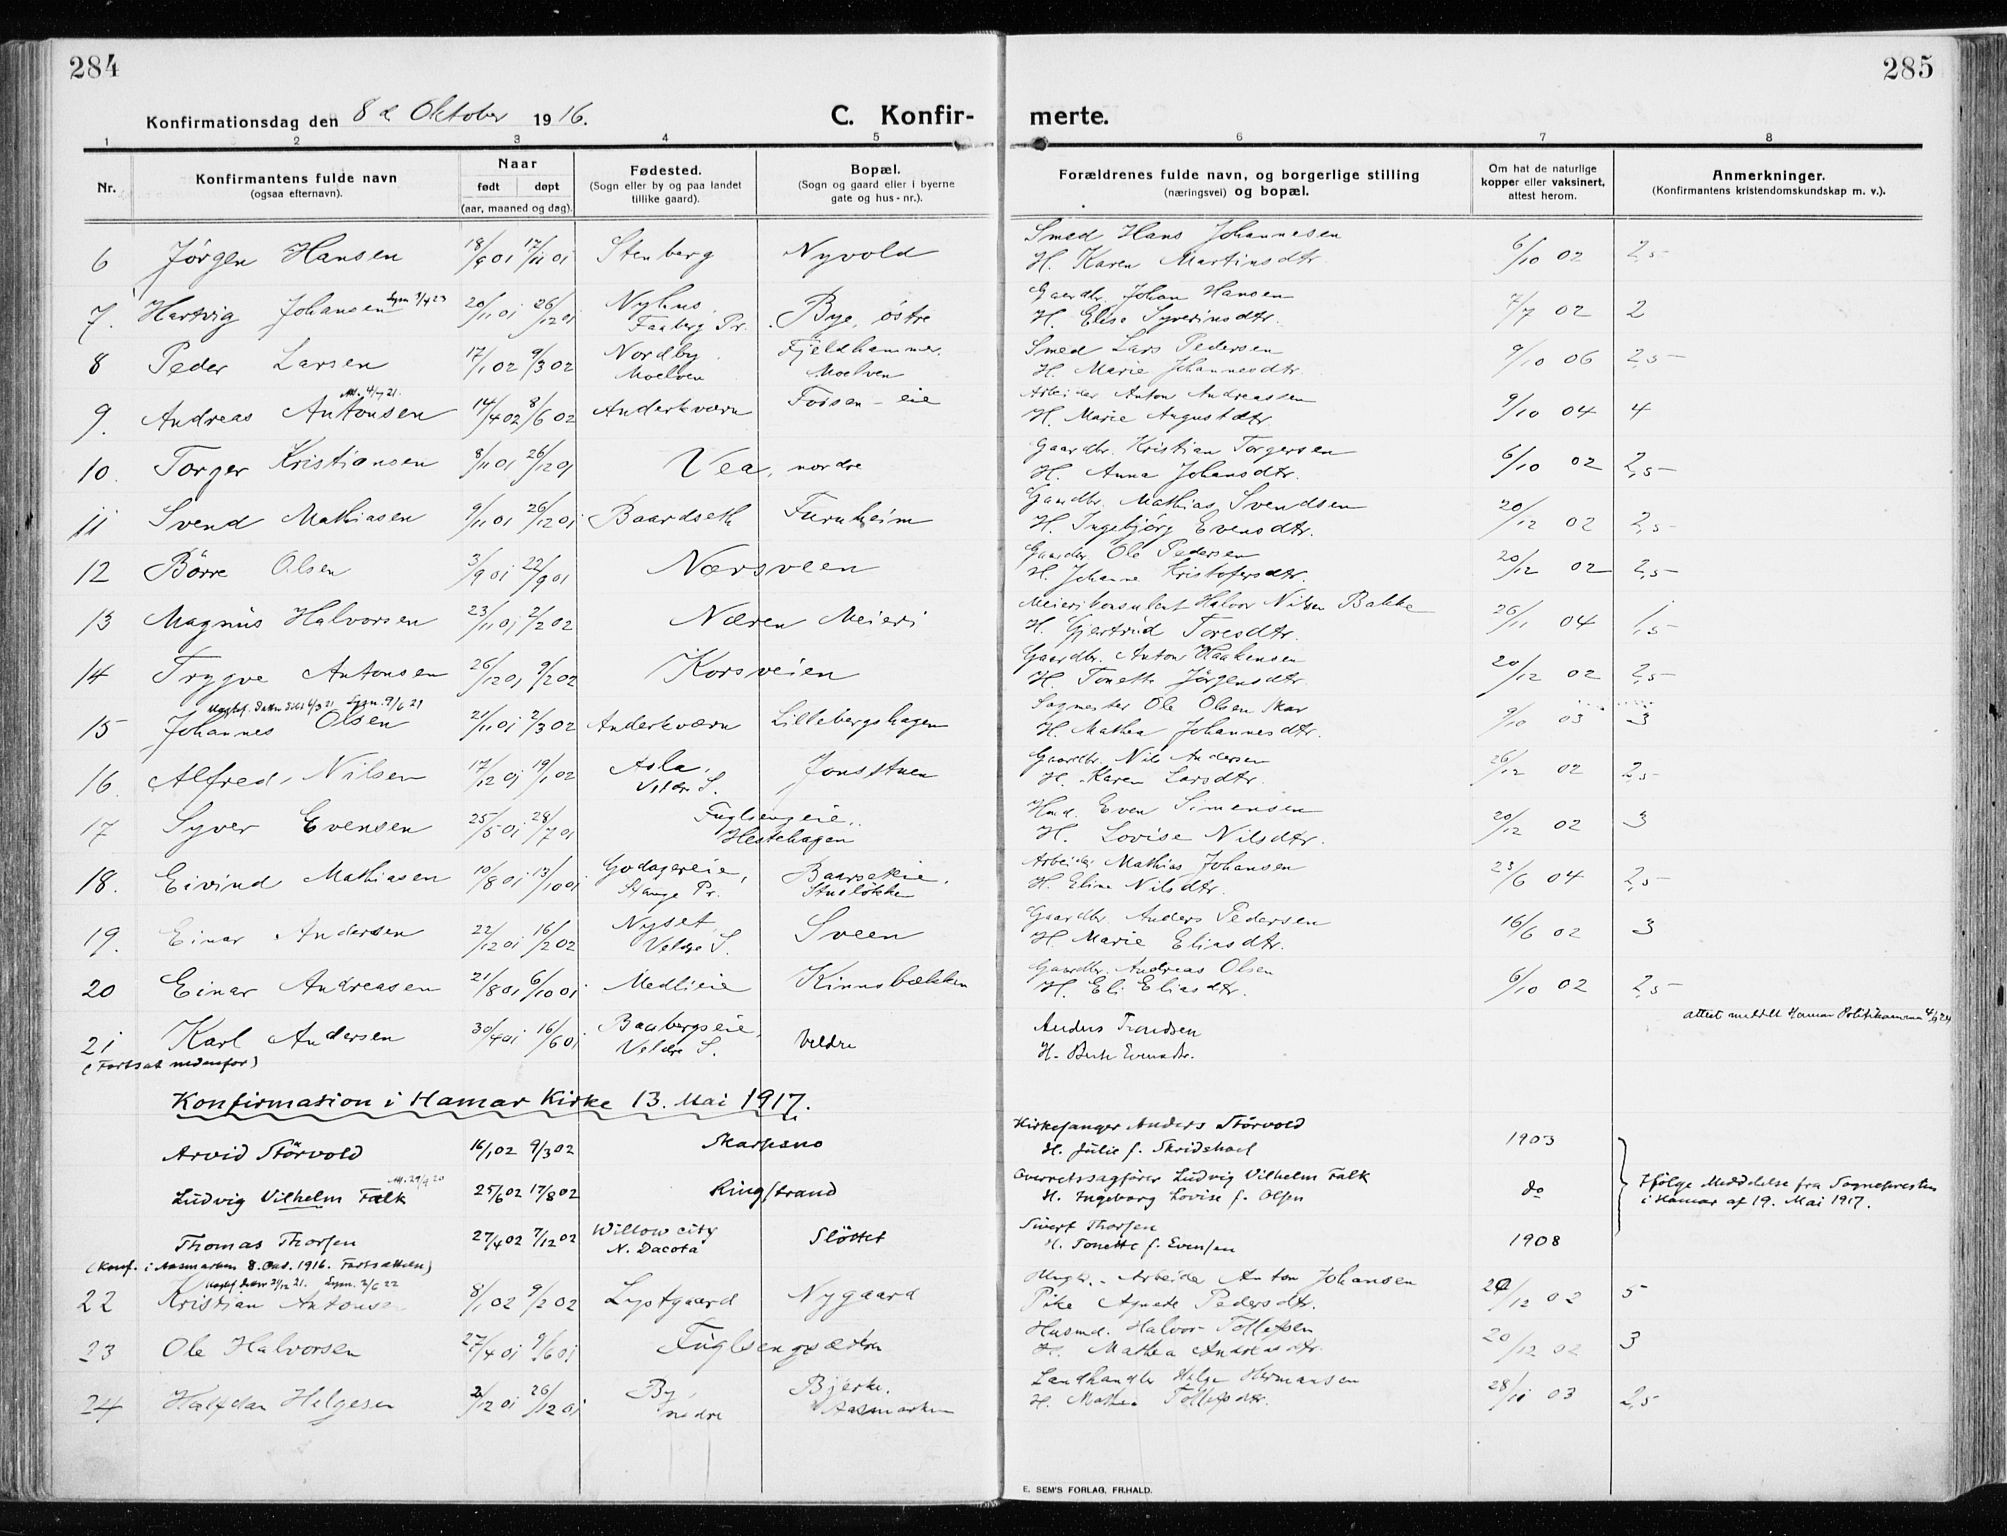 284
285
Konfirmationsdag den 8 de Oktober 1916.
C. Konfirmerte.
1 2 3 4 5 6 7 8
Nr.
Konfirmantens fulde navn
(ogsaa efternavn).
Naar
født døpt
(aar, maaned og dag).
Fødested.
(Sogn eller by og paa landet
tillike gaard).
Bopæl.
(Sogn og gaard eller i byerne
gate og hus-nr.).
Forældrenes fulde navn, og borgerlige stilling
(næringsvei) og bopæl.
Om hat de naturlige
kopper eller vaksinert,
attest herom.
Anmerkninger.
(Konfirmantens kristendomskundskap m. v.).
6 Jörgen Hansen 18/9 01 17/11 01 Stenberg Nyvold Smed Hans Johannesen 6/10 02 2,5
H. Karen Martinsdtr.
7. Hartvig Johansen 20/11 01 26/12 01 Nyhus Bye, östre Gaardbr. Johan Hansen 7/7 02 2
Faaberg Pr. H. Elise Syverinsdtr.
8 Peder Larsen 17/1 02 9/3 02 Nordby Fjeldhammer Smed Lars Pedersen 9/10 06 2,5
Moelven Moelven H. Marie Johannesdtr.
9. Andreas Antonsen 14/4 02 8/6 02 Anderkværn Fossen-eie Arbeider Anton Andreassen 9/10 04 4
H. Marie Augustdtr.
10. Torger Kristiansen 8/11 01 26/12 01 Vea, nordre Gaardbr. Kristian Torgersen 6/10 02 2,5
H. Anna Johansdtr.
11 Svend Mathiasen 9/11 01 26/12 01 Baardseth Furuheim Gaardbr. Mathias Svendsen 20/12 02 2,5
H. Ingebjörg Evensdtr.
12 Börre Olsen 3/9 01 22/9 01 Nærsveen Gaardbr. Ole Pedersen 20/12 02 2,5
H. Johanne Kristofersdtr.
13 Magnus Halvorsen 23/11 01 2/2 02 Næren Meieri Meierikonsulent Halvor Nilsen Bakke 26/11 04 1,5
H. Gjertrud Toresdtr.
14 Trygve Antonsen 26/12 01 9/2 02 Korsveien Gaardbr. Anton Haakensen 20/12 02 2,5
H. Tonette Jörgensdtr.
15 Johannes Olsen 21/11 01 2/3 02 Anderkværn Lillebergshagen Sagmester Ole Olsen Skar 9/10 03 3
H. Mathea Johannesdtr.
16. Alfred Nilsen 17/12 01 19/1 02 Asla, Jonsstuen Gaardbr. Nils Andersen 26/12 02 2,5
Veldre S. H. Karen Larsdtr.
17 Syver Evensen 25/5 01 28/7 01 Fuglsengeie, Hmd. Even Simensen 20/12 02 3
Hestehagen H. Lovise Nilsdtr.
18. Eivind Mathiasen 10/8 01 13/10 01 Godagereie, Baarsekeie, Arbeider Mathias Johansen 23/6 04 2,5
Stange Pr. Stuelökken H. Eline Nilsdtr.
19. Einar Andersen 22/12 01 16/2 02 Nyset Sveen Gaardbr. Anders Pedersen 16/6 02 3
Veldre S. H. Marie Eliasdtr.
20 Einar Andreasen 21/8 01 6/10 01 Medlieie Kinnsbækken Gaardbr. Andreas Olsen 6/10 02 2,5
H. Eli Eliasdtr.
21 Karl Andersen 30/4 01 16/6 01 Baabergseie, Veldre Anders Trondsen
Veldre S. H. Berte Evensdtr.
(Fortsat nedenfor)
Konfirmasion i Hamar Kirke 13. Mai 1917.
Arvid Störvold 16/1 02 9/3 02 Skarpsno Kirkesanger Anders Störvold 1903
H. Julie f. Skrideshol
Ludvig Vilhelm Falk 25/6 02 17/8 02 Ringstrand Overretssagförer Ludvig Vilhelm Falk do
H. Ingeborg Lovise f. Olsen
Ifölge Meddelse fra Sognepresten
i Hamar af 19. Mai 1917.
Thomas Thorsen 27/4 02 7/12 02 Willow city Slöttet Sivert Thorsen 1908
N. Dacota H. Tonette f. Evensen
(Konf. i Aasmarken 8. Okt. 1916. Fortsatten)
22 Kristian Antonsen 8/1 02 9/2 02 Lystgaard Nygaard Ungk. Arbeider Anton Johansen 20/12 02 5
Pike Agnete Pedersdtr.
23 Ole Halvorsen 27/4 01 9/6 01 Fuglsengsætra Husmd. Halvor Tollefsen 20/12 02 3
H. Mathea Andreasdtr.
24 Halfdan Helgesen 2/12 01 26/12 01 By, Bjerke, Landhandler Helge Hermansen 28/10 03 2,5
nedre Aasmarken H. Mathea Tollefsdtr.
E. SEM'S FORLAG, FR.HALD.